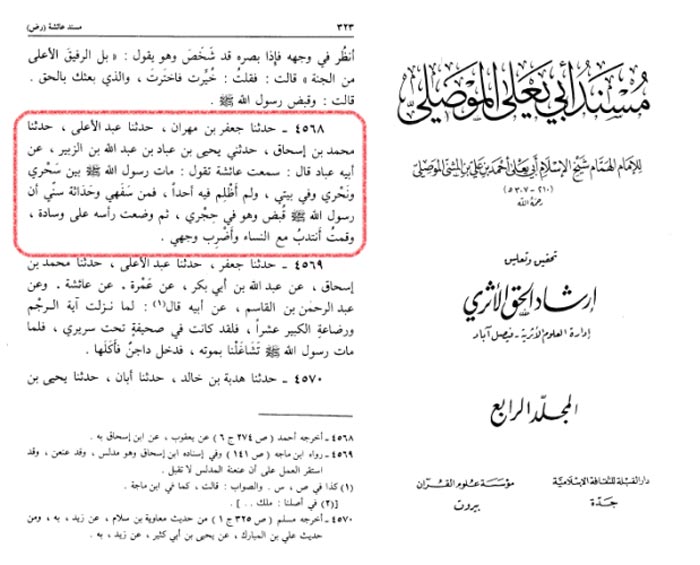 ٣٢٣ مسند عائشة (رض)
أنظُر في وجهه فإذا بصره قد شَخَصَ وهو يقول : « بل الرفيقَ الأعلى
من الجنة » قالت : فقلتُ : خُيِّرت فاخترتَ ، والذي بعثك بالحق .
قالت : وقبض رسول الله ﷺ .
٤٥٦٨ ـ حدثنا جعفر بن مهران ، حدثنا عبد الأعلى ، حدثنا
محمد بن إسحاق ، حدثني يحيى بن عباد بن عبد الله بن الزبير ، عن
أبيه عباد قال : سمعت عائشة تقول : مات رسول الله ﷺ بين سَحْري
ونَحْري وفي بيتي ، ولم أَظْلِم فيه أحداً ، فمن سَفَهي وحَدَاثة سنّي أن
رسول الله ﷺ قُبض وهو في حِجْري ، ثم وضعت رأسه على وسادة ،
وقمتُ أَنتدبُ مع النساء وأَضْرِب وجهي .
٤٥٦٩ ـ حدثنا جعفر ، حدثنا عبد الأعلى ، حدثنا محمد بن
إسحاق ، عن عبد الله بن أبي بكر ، عن عَمْرة. عن عائشة . وعن
عبد الرحمن بن القاسم ، عن أبيه قال(١) : لما نزلت آية الرجْم
ورضاعةِ الكبير عشراً ، فلقد كانت في صحيفةٍ تحت سريري ، فلما
مات رسول الله ﷺ تَشَاغَلْنا بموته ، فدخل داجنٌ فأَكَلَها .
٤٥٧٠ ـ حدثنا هدبة بن خالد ، حدثنا أبان ، حدثنا يحيى بن
٤٥٦٨ ـ أخرجه أحمد ( ص ٢٧٤ ج ٦ ) عن يعقوب ، عن ابن إسحاق به .
٤٥٦٩ ـ رواه ابن ماجه ( ص ١٤١ ) وفي إسناده ابن إسحاق وهو مدلس ، وقد عنعن ، وقد
استقر العمل على أن عنعنة المدلس لا تقبل .
(١) كذا في ص ، س . والصواب : قالت ، كما في ابن ماجة .
[(٢) في أصلنا : ملك .. ] .
٤٥٧٠ ـ أخرجه مسلم ( ص ٣٢٥ ج ١ ) من حديث معاوية بن سلام ، عن زيد ، به ، ومن
حديث علي بن المبارك ، عن يحيى بن أبي كثير ، عن زيد ، به .
مُسْنَدُ أَبِي يَعْلَى المَوْصِلِيّ
للإمام الهمام شيخ الإسلام أبي يعلى أحمد بن علي بن المثنى الموصلي
(٢١٠ - ٣٠٧ هـ)
رحمه الله
تحقيق وتعليق
إرشاد الحق الأثري
إدارة العلوم الأثرية - فيصل آباد
المجلّد الرابع
دار القبلة للثقافة الإسلامية
جدّة
مؤسسة علوم القرآن
بيروت